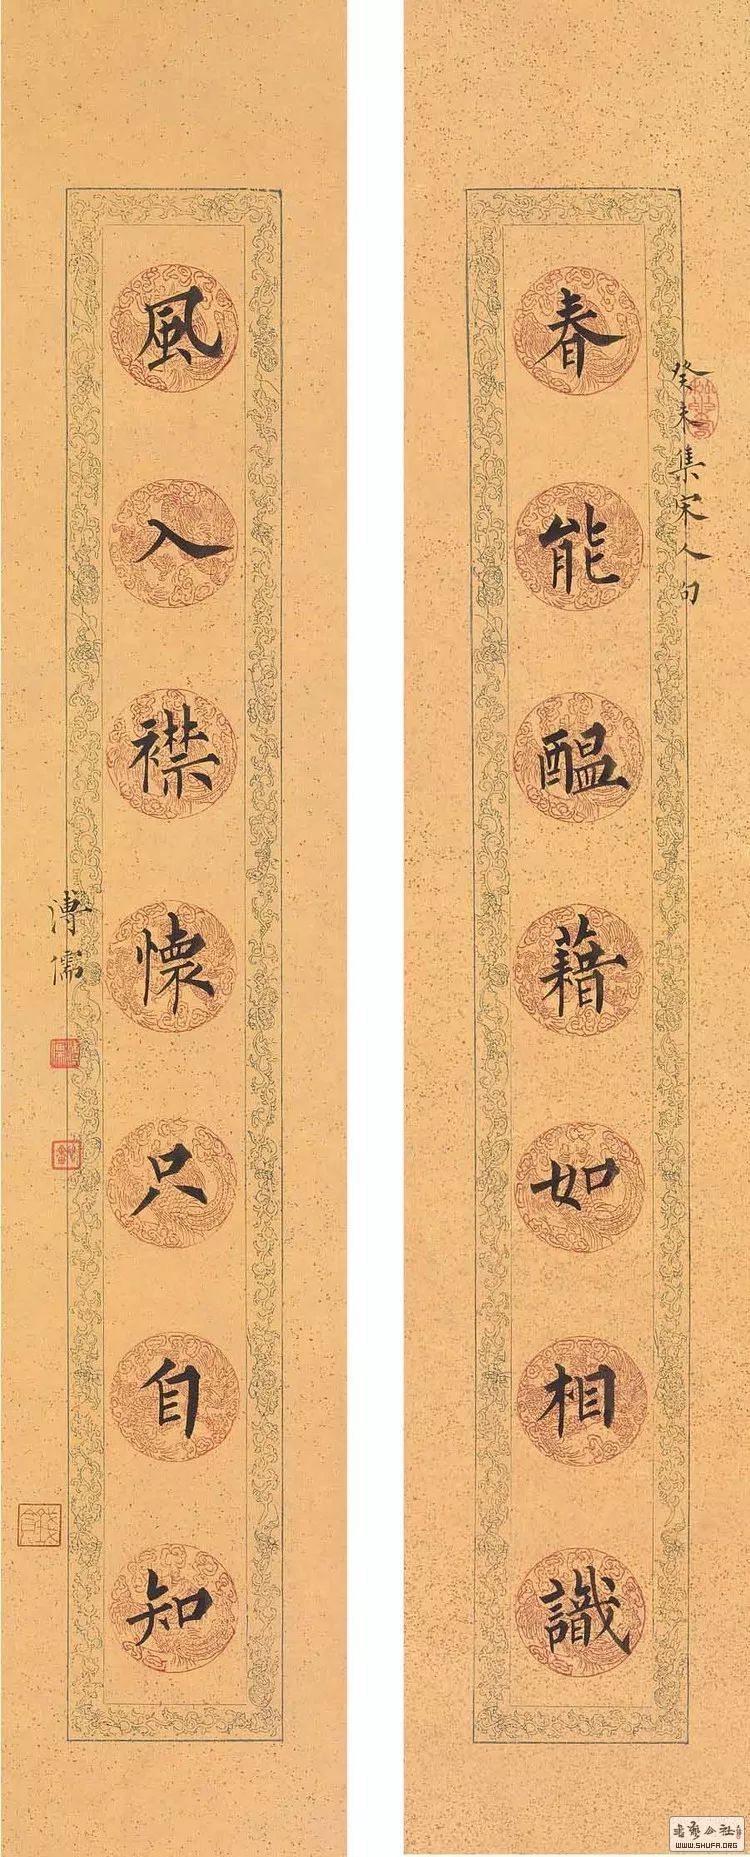 癸未集宋人句
春能醞藉如相識
風入襟懷只自知
溥儒
WWW.SHUFA.ORG